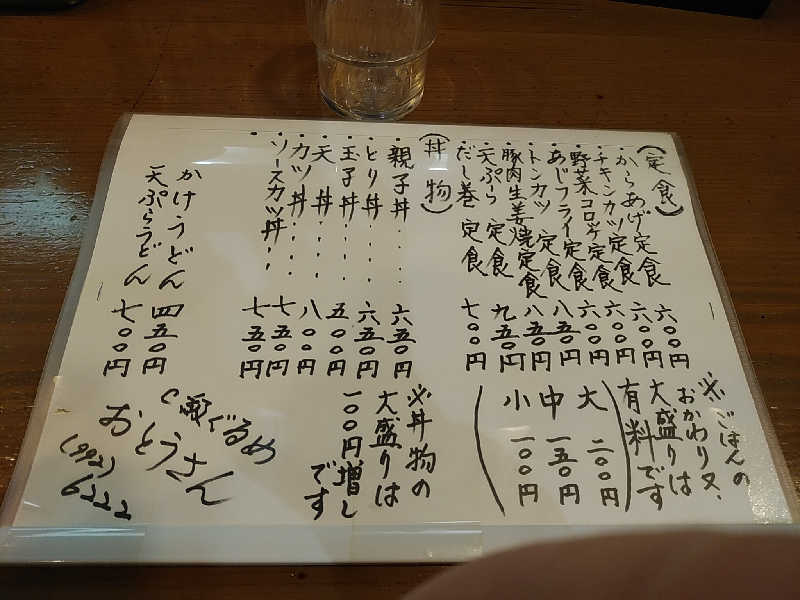 (定食)
・からあげ定食 六〇〇円
・チキンカツ定食 六〇〇円
・野菜コロッケ定食 六〇〇円
・あじフライ定食 六〇〇円
・トンカツ定食 八五〇円
・豚肉生姜焼定食 八五〇円
・天ぷら定食 九五〇円
・だし巻定食 七〇〇円
※ごはんの
おかわり又、
大盛りは
有料です
(大 二〇〇円
中 一五〇円
小 一〇〇円)
(丼物)
・親子丼・・・・ 六五〇円
・とり丼・・・・ 六五〇円
・玉子丼・・・・ 五〇〇円
・天丼・・・・ 八〇〇円
・カツ丼・・・・ 七五〇円
・ソースカツ丼・・ 七五〇円
※丼物の
大盛りは
一〇〇円増し
です
かけうどん 四五〇円
天ぷらうどん 七〇〇円
C級ぐるめ
おとうさん
(992)
6222